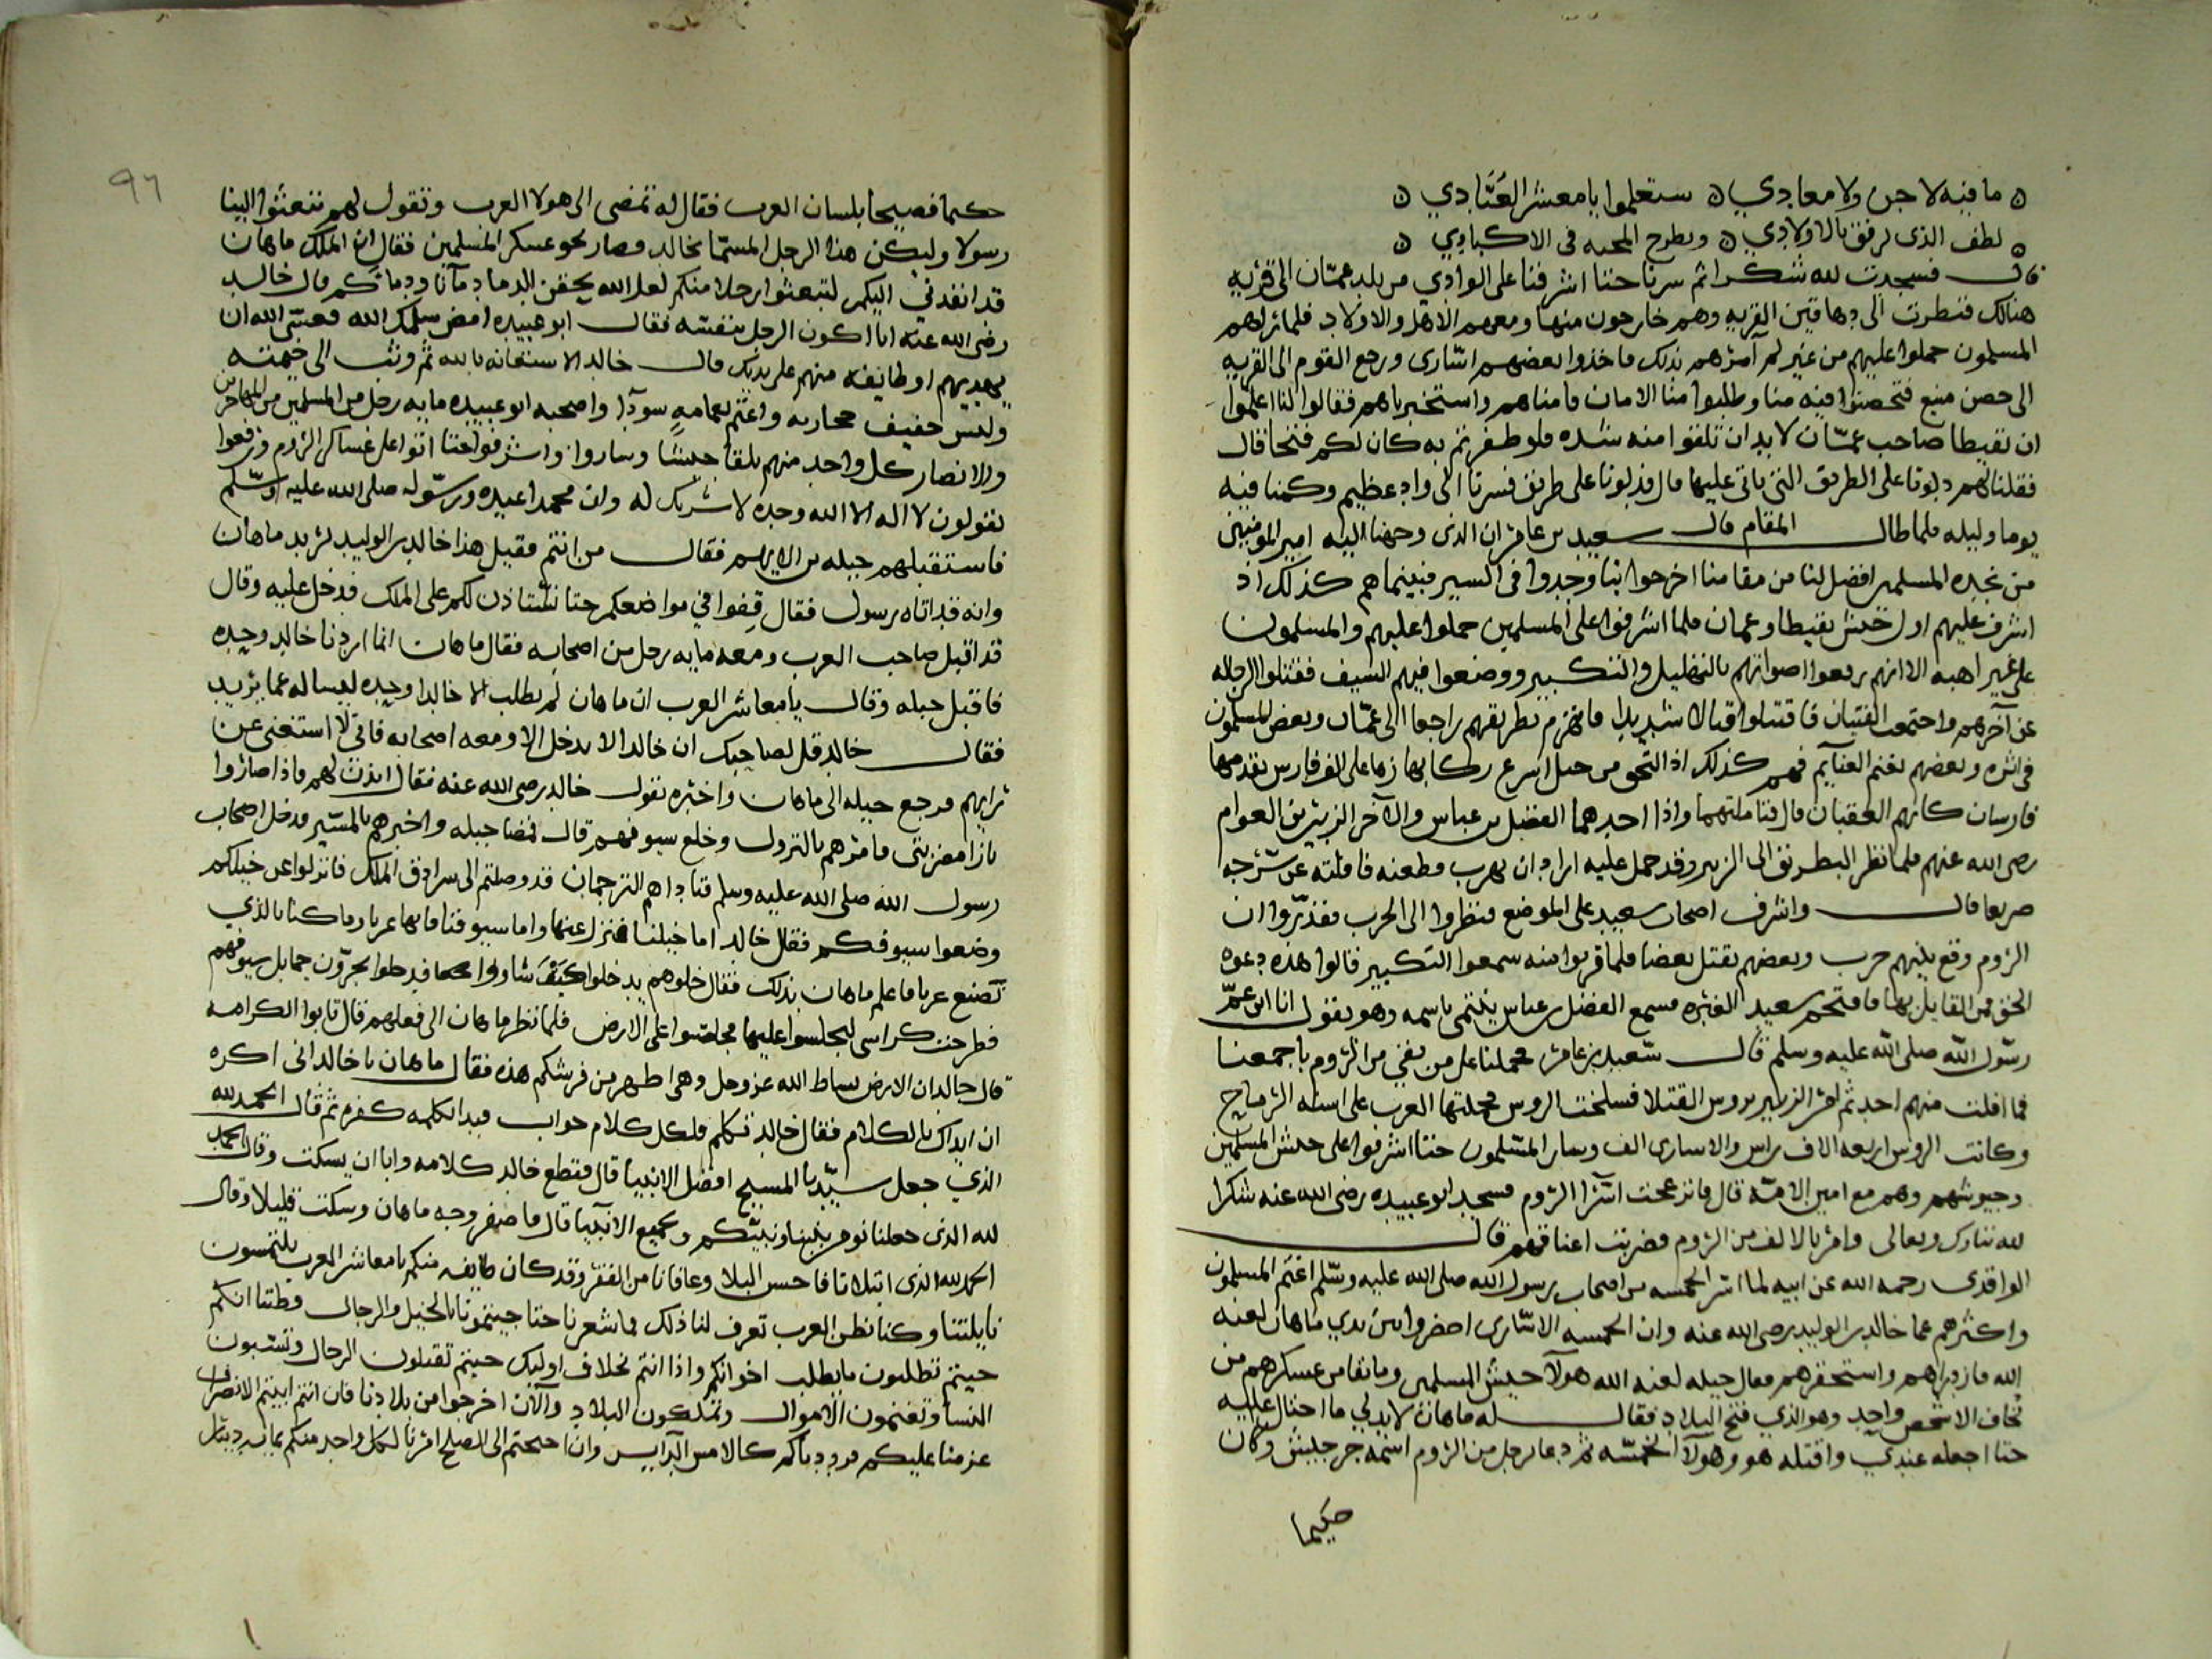 ما فيه لا جن ولا معادي ستعلموا يا معشر العبادي
لطف الذي يرفق بالاولادي ويطرح المحبه في الاكبادي
قال فسجدت لله شكرا ثم سرنا حتا اشرفنا على الوادي من بلد عمّان الى قريه
هنالك فنظرت الى دهاقين القريه وهم خارجون منها ومعهم الاهل والاولاد فلما نزلهم
المسلمون حملوا عليهم من غير ان آمرهم بذلك فاخذوا بعضهم اسارى ورجع القوم الى القريه
الى حصن منيع فتحصنوا فيه منا وطلبوا منا الامان فامناهم واستخبرناهم فقالوا لنا اعلموا
ان نقيطا صاحب عمّان لا بد ان تلقوا منه شده فلو ظفرتم به كان لكم فتحا قال
فقلنا لهم دلونا على الطريق التي ياتي عليها قال فدلونا على طريق فسرنا الى واد عظيم وكمنا فيه
يوما وليله فلما طال المقام قال سعيد بن عامر ان الذي وجهنا اليه امير المومنين
من نجده المسلمين افضل لنا من مقامنا اخرجوا بنا وجدوا في السير فبينما هم كذلك اذ
اشرف عليهم اول جيش نقيطا وعمان فلما اشرفوا على المسلمين حملوا عليهم والمسلمون
على غير اهبه الا انهم رفعوا اصواتهم بالتهليل والتكبير ووضعوا فيهم السيف فقتلوا الرجاله
عن آخرهم واجتمعت الفتيان فاقتتلوا قتالا شديدا فانهزم بطريقهم راجعا الى عمّان وبعض المسلمون
في اثره وبعضهم يغنم الغنايم فهم كذلك اذ التحق من خيل اسرع ركابها زها على الف فارس يقدمها
فارسان كانهم العقبان قال فتاملتهما واذا احدهما الفضل بن عباس والآخر الزبير بن العوام
رضي الله عنهم فلما نظر البطريق الى الزبير وقد حمل عليه اراد ان يهرب فطعنه فاقلته عن سرجه
صريعا قال واشرف اصحاب سعيد على الموضع فنظروا الى الحرب فقدّروا ان
الروم وقع بينهم حرب وبعضهم يقتل بعضا فلما قربوا منه سمعوا التكبير قالوا هذه دعوه
الحق فمن القايل بها فافتحم سعيد الغبره فسمع الفضل بن عباس ينتمي باسمه وهو يقول انا ابن عمّ
رسول الله صلى الله عليه وسلم قال سعيد بن عامر فحملنا على من بقي من الروم باجمعنا
فما افلت منهم احد ثم امر الزبير بروس القتلا فسلخت الروس فحملتها العرب على اسنه الرماح
وكانت الروس اربعه الاف راس والاسارى الف وسار المسلمون حتا اشرفوا على جيش المسلمين
وجيوشهم وهم مع امين الامّه قال فانزعجت اسرا الروم فسجد ابو عبيده رضي الله عنه شكرا
لله تبارك وتعالى وامر بالالف من الروم فضربت اعناقهم قال
الواقدي رحمه الله عن ابيه لما اسر الخمسه من اصحاب رسول الله صلى الله عليه وسلم اغتم المسلمون
واكثرهم غما خالد بن الوليد رضي الله عنه وان الخمسه الاسارى احضروا بين يدي ماهان لعنه
الله فازدراهم واستحقرهم فقال جبله لعنه الله هولا جيش المسلمين وما بقا من عسكرهم من
نخاف الا شخص واحد وهو الذي فتح البلاد فقال له ماهان لا بد لي ما احتال عليه
حتا اجعله عندي واقتله هو وهولا الخمسّه ثم دعا برجل من الروم اسمه جرجيش وكان
حكيما
٩٦
حكيما فصيحا بلسان العرب فقال له تمضي الى هولا العرب وتقول لهم تبعثوا الينا
رسولا وليكن هذا الرجل المسمّا بخالد فصار نحو عسكر المسلمين فقال ان الملك ماهان
قد انفدني اليكم لتبعثوا رجلا منكم لعل الله يحقن الدما دمآنا ودمائكم قال خالد
رضي الله عنه انا اكون الرجل بنفسه فقال ابو عبيده امض سلمك الله فعسى الله ان
يهديهم او طايفه منهم على يديك قال خالد الاستعانه بالله ثم وثب الى خيمته
ولبس خفيف محاربه واعتم بعمامهٍ سودآ واصحبه ابو عبيده مايه رجل من المسلمين من المهاجرين
والانصار كل واحد منهم يلقا جيشا وساروا واشرفوا حتا اتوا على عساكر الروم ورفعوا
يقولون لا اله الا الله وحده لا شريك له وان محمدا عبده ورسوله صلى الله عليه وسلم
فاستقبلهم جبله بن الايهم فقال من انتم فقيل هذا خالد بن الوليد يريد ماهان
وانه قد اتاه رسول فقال قفوا في مواضعكم حتا نستاذن لكم على الملك فدخل عليه وقال
قد اقبل صاحب العرب ومعه مايه رجل من اصحابه فقال ماهان انما اردنا خالد وحده
فاقبل جبله وقال يا معاشر العرب ان ماهان لم يطلب الا خالدا وحده ليساله عما يريد
فقال خالد قل لصاحبك ان خالدا لا يدخل الا ومعه اصحابه فاني لا استغنى عن
رايهم فرجع جبله الى ماهان واخبره بقول خالد رضي الله عنه فقال ايذن لهم فاذا صاروا
بازا مضربتي فامرهم بالنزول وخلع سيوفهم قال فمضا جبله واخبرهم بالمسير فدخل اصحاب
رسول الله صلى الله عليه وسلم فناداهم الترجمان قد وصلتم الى سرادق الملك فانزلوا عن خيلكم
وضعوا سيوفكم فقال خالد اما خيلنا فننزل عنها واما سيوفنا فانها عزنا وما كنا بالذي
نضع عزنا فاعلم ماهان بذلك فقال خلوهم يدخلوا كيف شاوا فدخلوا يجرّون حمايل سيوفهم
فطرحت كراسي ليجلسوا عليها فجلسوا على الارض فلما نظر ماهان الى فعلهم قال تابوا الكرامه
قال خالد ان الارض بساط الله عز وجل وهي اطهر من فرشكم هذه فقال ماهان يا خالد اني اكره
ان ابداك بالكلام فقال خالد تكلم فلكل كلام جواب فبدا بكلمه كفره ثم قال الحمد لله
الذي جعل سيّدنا المسيح افضل الانبيا قال فقطع خالد كلامه وابا ان يسكت وقال الحمد
لله الذي جعلنا نومن بنبينا ونبيّكم وبجميع الانبيا قال فاصفر وجه ماهان وسكت قليلا وقال
الحمد لله الذي ابتلانا فاحسن البلا وعافانا من الفقر وقد كان طايفه منكم يا معاشر العرب يلتمسون
نايلتنا وكنا نظن العرب تعرف لنا ذلك فما شعرنا حتا جيتمونا بالخيل والرجال وظننا انكم
جيتم تطلبون ما يطلب اخوانكم واذا انتم بخلاف اوليك جيتم تقتلون الرجال وتسبون
النسا وتغنمون الاموال وتملكون البلاد والآن اخرجوا من بلادنا فان انتم ابيتم الانصراف
عزمنا عليكم فرددناكم كالامس الدابر وان اجبتم الى الصلح امرنا لكل واحد منكم بمايه دينار